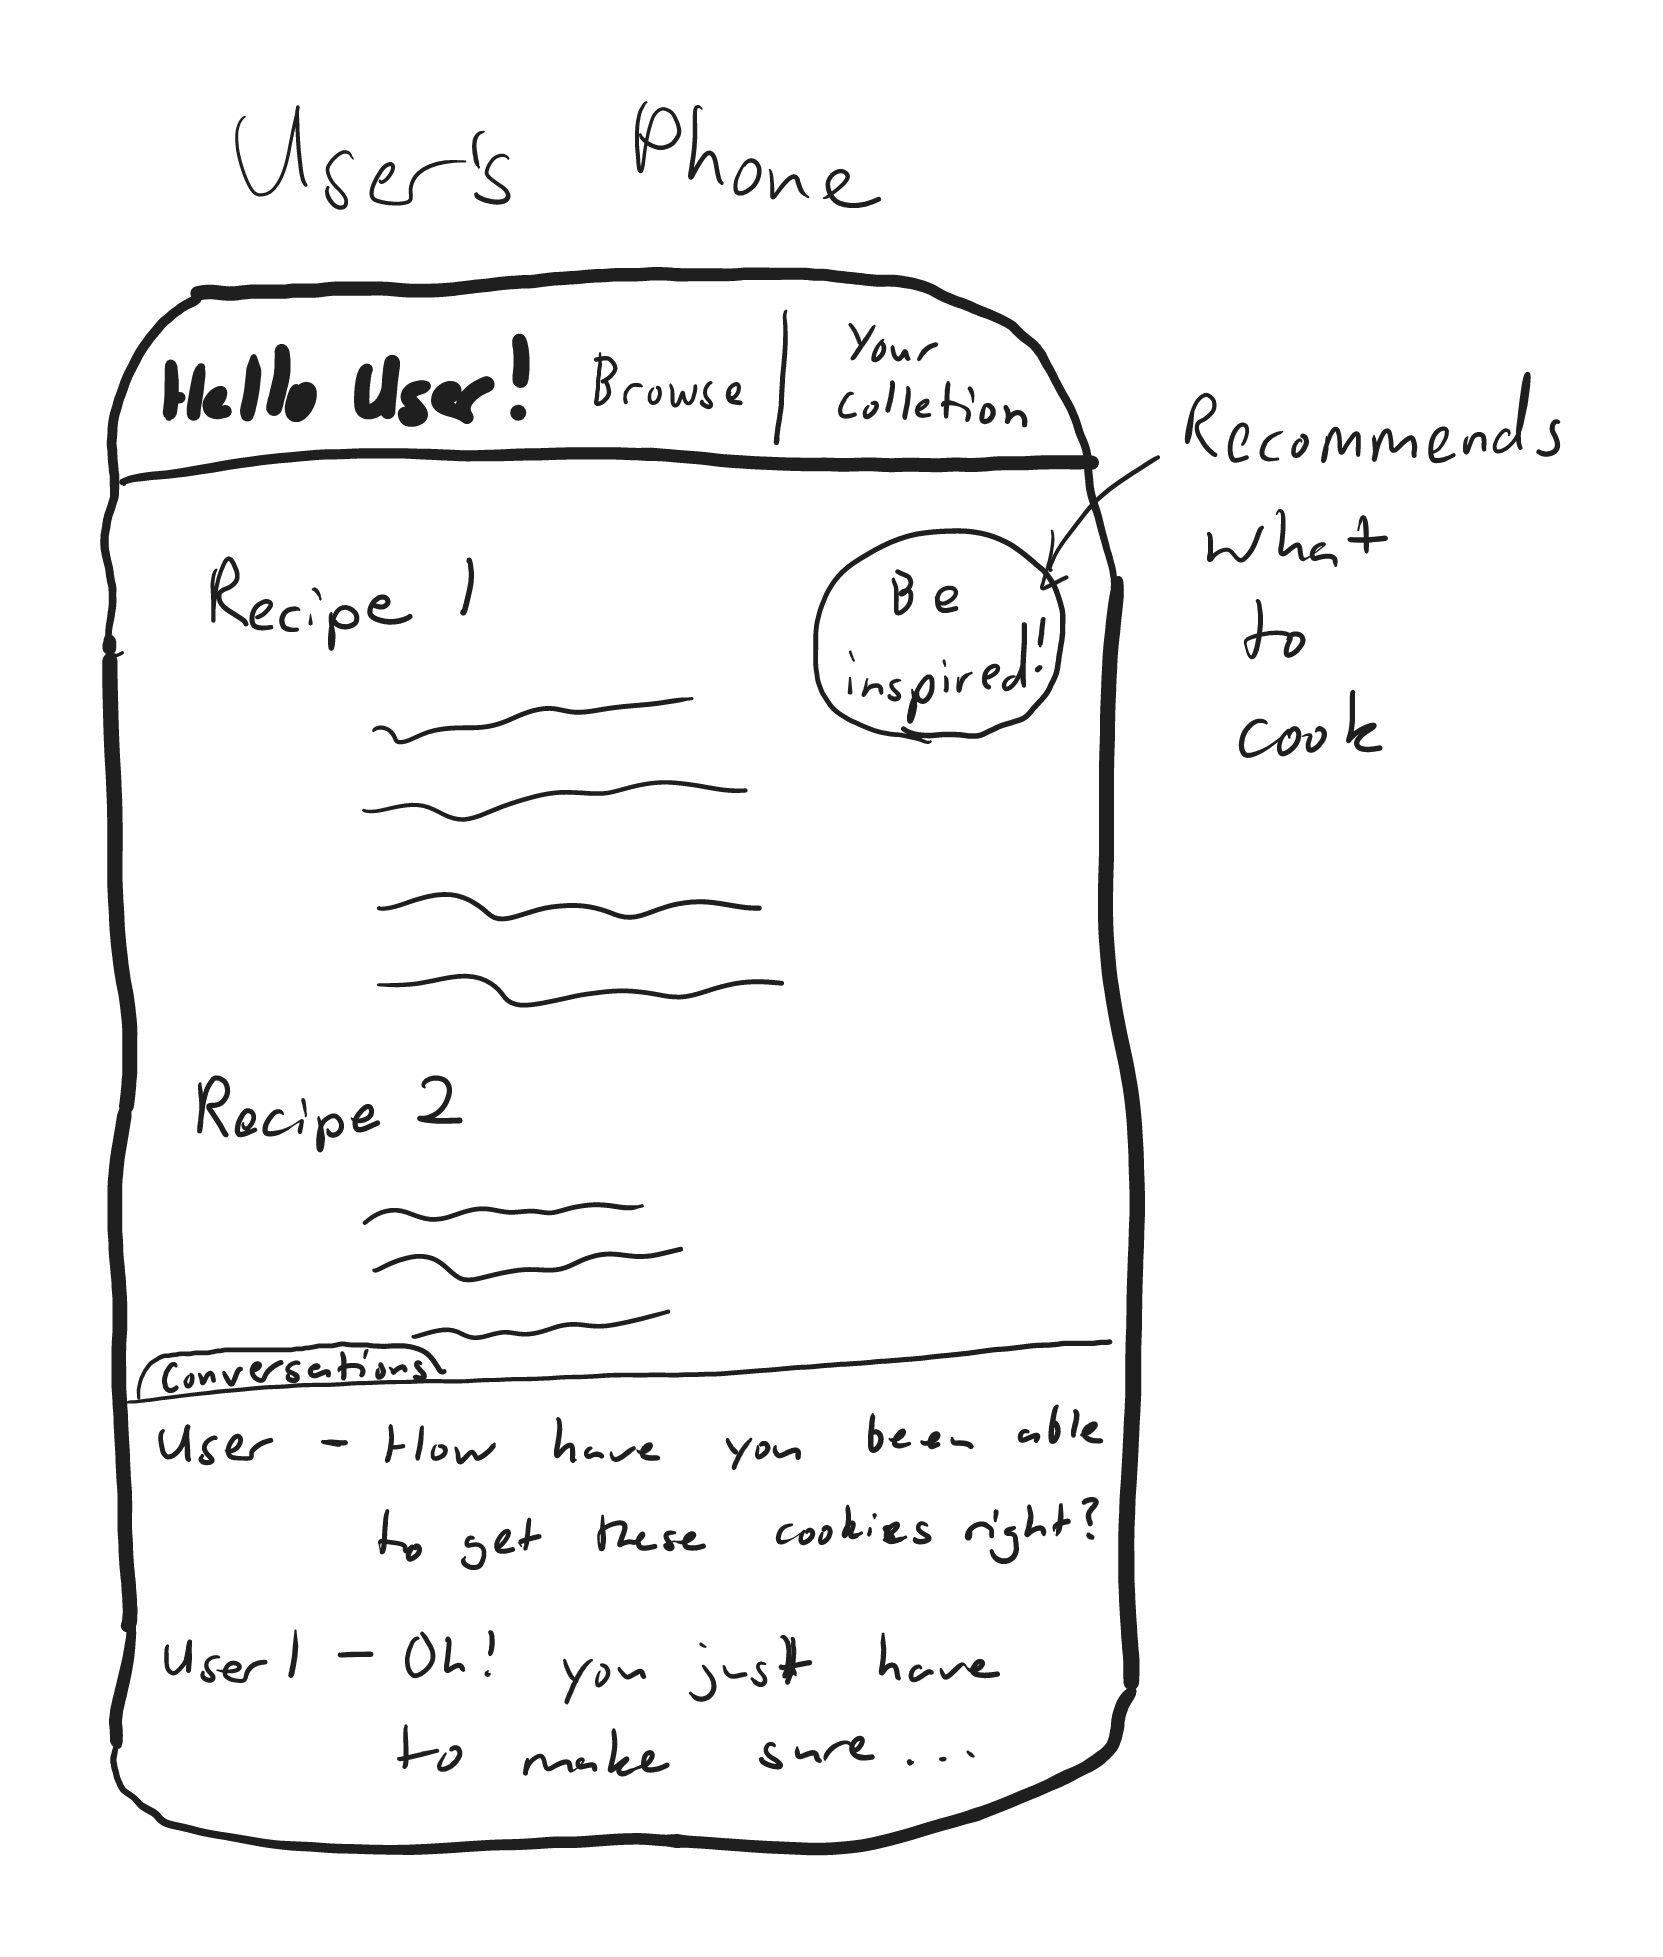 User's Phone
Hello User!
Browse
Your
Colletion
Recommends
what
to
cook
Recipe 1
Be
inspired!
Recipe 2
Conversations
User - How have you been able
to get these cookies right?
User1 - Oh! you just have
to make sure...